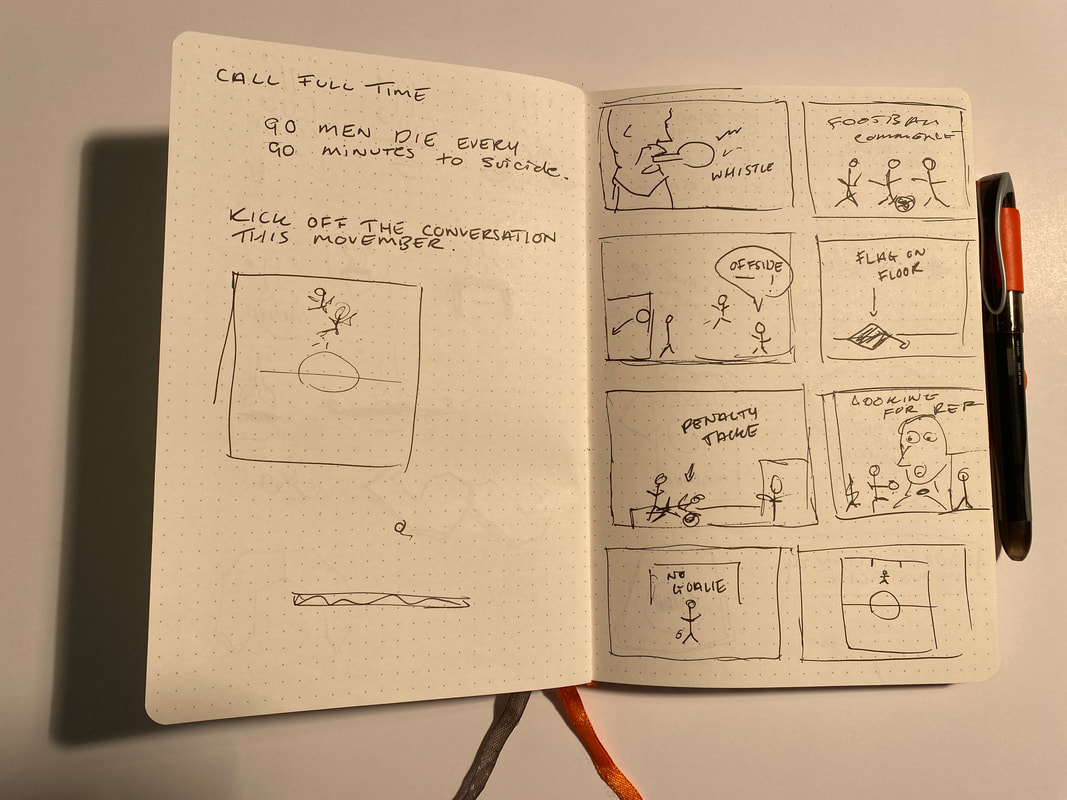 CALL FULL TIME
90 MEN DIE EVERY
90 MINUTES TO SUICIDE.
KICK OFF THE CONVERSATION
THIS MOVEMBER.
WHISTLE
FOOTBALL
OFFSIDE
!
FLAG ON
FLOOR
PENALTY
LOOKING
FOR REF
NO
GOALIE